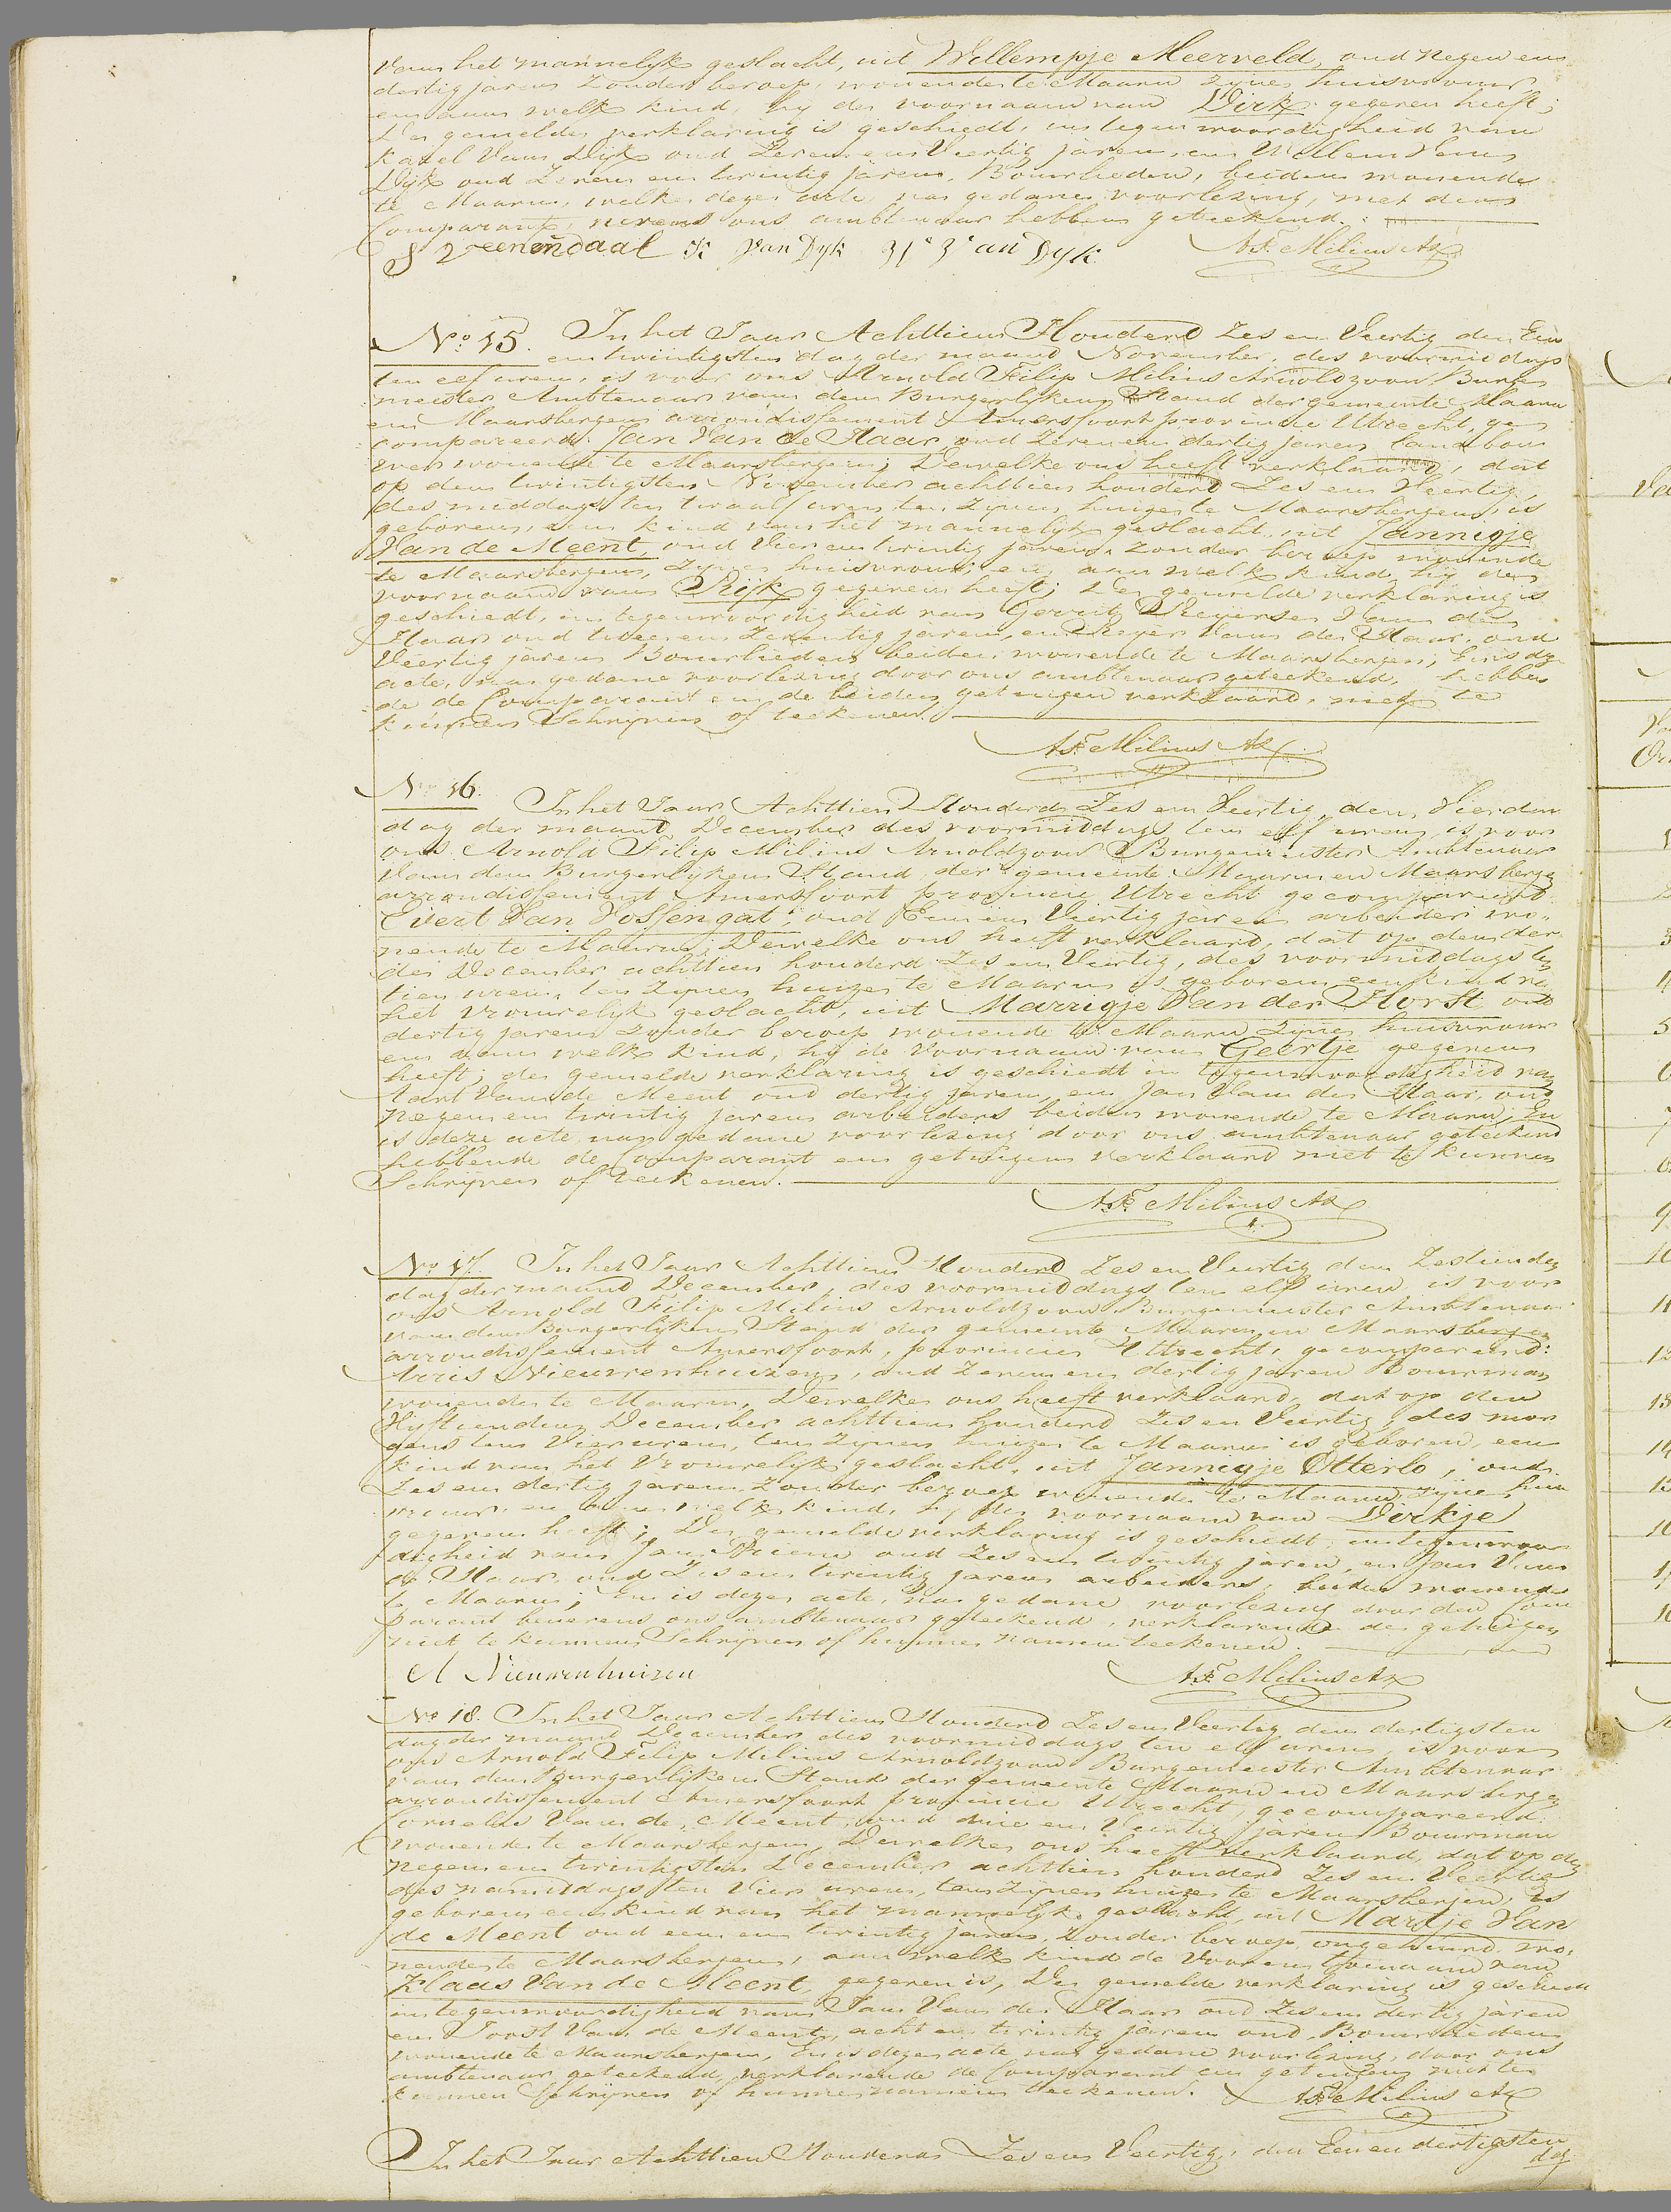 van het mannelijk geslacht, uit Willempje Meerveld, oud negen en
dertig jaren zonder beroep, wonende te Maarn zijne huisvrouw
en aan welk kind, hij de voornaam van Dirk gegeven heeft;
De gemelde verklaring is geschiedt, in tegenwoordigheid van
Karel Van Dijk oud Zeven en Veertig jaren, en Willem Van
Dijk oud Zeven en twintig jaren, Bouwlieden, beiden wonende
te Maarn, welke deze acte, na gedane voorlezing, met den
Comparant, nevens ons ambtenaar hebben geteekend.
Veenendaal K Van Dyk Van Dyk AF Milius Az
No 15. In het Jaar Achttien Honderd Zes en Veertig den Een
en twintigsten dag der maand November, des voormiddags
ten elf uren, is voor ons Arnold Filip Milius Arnoldzoon Burge
meester Ambtenaar van den Burgerlijken Stand der gemeente Maarn
en Maarsbergen arrondissement Amersfoort provincie Utrecht, ge
compareerd: Jan Van de Haar, oud Zeven en dertig jaren landbou
wer wonende te Maarsbergen; Dewelke ons heeft verklaard, dat
op den twintigsten November achttien honderd Zes en Veertig,
des middags ten twaalf uren ten zijnen huize te Maarsbergen, is
geboren, een kind van het mannelijk geslacht, uit Jannigje
Van de Meent, oud Vier en twintig jaren, zonder beroep wonende
te Maarsbergen, zijne huisvrouw; en, aan welk kind, hij den
voornaam van Rijk gegeven heeft; De gemelde verklaring is
geschiedt, in tegenwoordigheid van Gerrit Meyersen Van den
Haar oud twee en Zeventig jaren, en Meyer Van de Haar, oud
Veertig jaren Bouwlieden beiden wonende te Maarsbergen; En is deze
acte, na gedane voorlezing door ons ambtenaar geteekend, hebben
de de Comparant en de beiden getuigen verklaard, niet te
kunnen Schrijven of teekenen.
AF Milius Az
No 16. In het Jaar Achttien Honderd Zes en Veertig, den Vierden
dag der maand December des voormiddags ten elf uren, is voor
ons Arnold Filip Milius Arnoldzoon Burgemeester Ambtenaar
Van den Burgerlijken Stand der gemeente Maarn en Maarsbergen
arrondissement Amersfoort provincie Utrecht gecompareerd
Evert Van Vossengat; oud Een en Veertig jaren arbeider wo-
nende te Maarn; Dewelke ons heeft verklaard, dat op den der
den December achttien honderd Zes en Veertig, des voormiddags ten
tien uren, ten zijnen huize te Maarn is geboren een kind van
het vrouwelijk geslacht, uit Marrigje Van der Horst oud
dertig jaren zonder beroep wonende te Maarn zijne huisvrouw
en aan welk kind, hij de Voornaam van Geertje gegeven
heeft; de gemelde verklaring is geschiedt in tegenwoordigheid van
Aart Van de Meent oud dertig jaren, en Jan Van de Haar, oud
negen en twintig jaren arbeiders beiden wonende te Maarn; En
is deze acte, na gedane voorlezing door ons ambtenaar geteekend
hebbende de Comparant en getuigen verklaard niet te kunnen
Schrijven of teekenen.
AF Milius Az
No 17. In het Jaar Achttien Honderd Zes en Veertig den Zestienden
dag der maand December, des voormiddags ten elf uren is voor
ons Arnold Filip Milius Arnoldzoon Burgemeester Ambtenaar
van den Burgerlijken Stand der gemeente Maarn en Maarsbergen
arrondissement Amersfoort, provincie Utrecht, gecompareerd:
Arris Nieuwenhuizen, oud Zeven en dertig jaren Bouwman
wonende te Maarn, Dewelke ons heeft verklaard, dat op den
Vijftienden December achttien honderd Zes en Veertig, des mor
gens ten Vier uren, ten zijnen huize te Maarn is geboren, een
kind van het Vrouwelijk geslacht, uit Jannigje Otterlo, oud
Zes en dertig jaren zonder beroep wonende te Maarn, zijne huis
vrouw, en aan welk kind, hij de voornaam van Dirkje
gegeven heeft; De gemelde verklaring is geschiedt, in tegenwoor
digheid van Jan oud Zes en twintig jaren, en Jan Van
de Haar, oud Zes en twintig jaren arbeiders, beiden wonende
te Maarn; En is deze acte, na gedane voorlezing door den Com
parant benevens ons ambtenaar geteekend, verklarende de getuigen
niet te kunnen Schrijven of hunne namen teekenen.
A Nieuwenhuizen AF Milius Az
No 18. In het Jaar Achttien Honderd Zes en Veertig den dertigsten
dag der maand December des voormiddags ten elf uren, is voor
ons Arnold Filip Milius Arnoldzoon Burgemeester Ambtenaar
van den Burgerlijken Stand der gemeente Maarn en Maarsbergen
arrondissement Amersfoort provincie Utrecht, gecompareerd
Cornelis Van de Meent, oud drie en Veertig jaren Bouwman
wonende te Maarsbergen, Dewelke ons heeft verklaard, dat op den
negen en twintigsten December achttien honderd Zes en Veertig
des namiddags ten Vier uren, ten zijnen huize te Maarsbergen, is
geboren een kind van het mannelijk geslacht, uit Martje Van
de Meent oud een en twintig jaren, zonder beroep ongehuwd, wo-
nende te Maarsbergen, aan welk kind de Voor en toenaam van
Klaas Van de Meent, gegeven is, De gemelde verklaring is geschiedt
in tegenwoordigheid van Jan Van de Haar oud Zes en dertig jaren
en Joost Van de Meent, acht en twintig jaren oud, Bouwlieden
wonende te Maarsbergen, En is deze acte na gedane voorlezing, door ons
ambtenaar geteekend, verklarende de Comparant en getuigen niet te
kunnen Schrijven of hunne namen teekenen. AF Milius Az
In het Jaar Achttien Honderd Zes en Veertig, den Een en dertigsten
dag